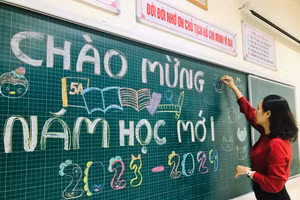 ĐỜI ĐỜI NHỚ ƠN CHỦ TỊCH HỒ CHÍ MINH VĨ ĐẠI
CHÀO MỪNG
5A
NĂM HỌC MỚI
2023-2024